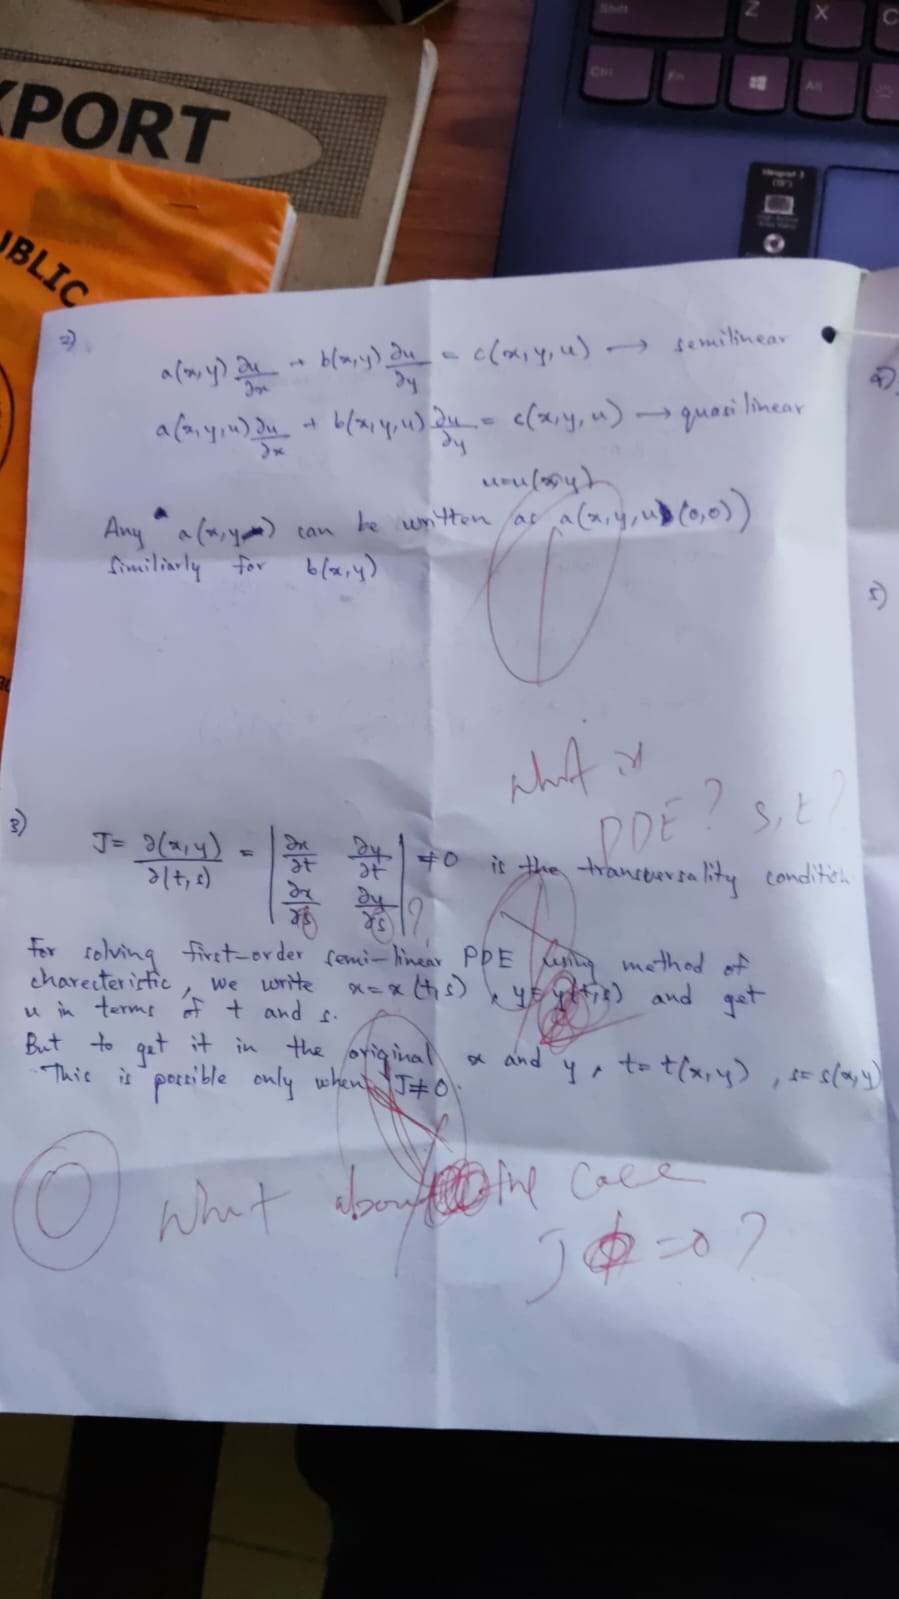 XPORT
UBLIC
Shift
Z
X
C
Ctrl
Fn
Alt
2)
a(x,y) ∂u/∂x + b(x,y) ∂u/∂y = c(x,y,u) → semilinear
a(x,y,u) ∂u/∂x + b(x,y,u) ∂u/∂y = c(x,y,u) → quasilinear
u=u(x,y)
Any a(x,y) can be written as a(x,y,u(0,0))
Similiarly for b(x,y)
4)
5)
What is
PDE? s,t?
3)
J= ∂(x,y)/∂(t,s) = |∂x/∂t ∂y/∂t; ∂x/∂s ∂y/∂s| ≠0 is the transversality condition
?
For solving first-order semi-linear PDE using method of
charecteristic, we write x=x(t,s), y=y(t,s) and get
u in terms of t and s.
But to get it in the original x and y, t=t(x,y), s=s(x,y)
This is possible only when J≠0.
0
What about the case
J =0?